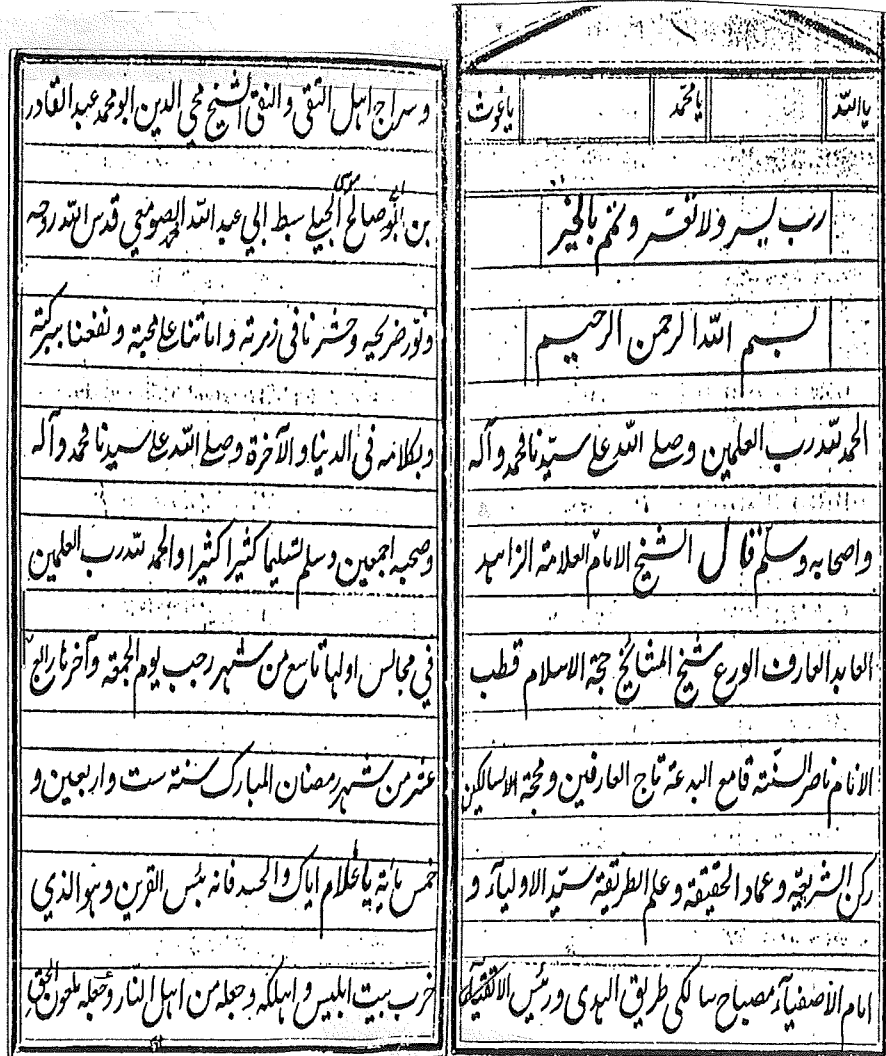 یا اللّٰه یا محمّد یا غوث
رب یسر ولا تعسر وتمم بالخیر
بسم اللّٰه الرحمن الرحیم
الحمد للّٰه رب العلمین وصلے اللّٰه علے سیّدنا محمد وآله
واصحابه وسلّم قال الشیخ الامام العلامة الزاهد
العابد العارف الورع شیخ المشائخ حجة الاسلام قطب
الانام ناصر السنّة قامع البدعة تاج العارفین ومحجة السالکین
رکن الشریعة وعماد الحقیقة وعلم الطریقة سیّد الاولیآء و
امام الاصفیآء مصباح سالکی طریق الهدی ورئیس الاتقیآء
وسراج اهل التقی والنقی الشیخ محی الدین ابو محمد عبد القادر
بن ابی صالح موسی الجیلے سبط ابی عبد اللّٰه محمد الصومعی قدس اللّٰه روحه
ونوّر ضریحیه وحشرنا فی زمرته واماتنا علے محبته ونفعنا ببرکته
وبکلامه فی الدنیا والآخرة وصلے اللّٰه علے سیدنا محمد وآله
وصحبه اجمعین وسلم تسلیما کثیرا کثیرا والحمد للّٰه رب العلمین
فی مجالس اولها تاسع من شهر رجب یوم الجمعة وآخرها رابع
عشر من شهر رمضان المبارک سنة ست واربعین و
خمس مایٔة یا غلام ایاک والحسد فانه بئس القرین وهو الذی
خرب بیت ابلیس واهلکه وجعله من اهل النّار وجعله ملعون الحق